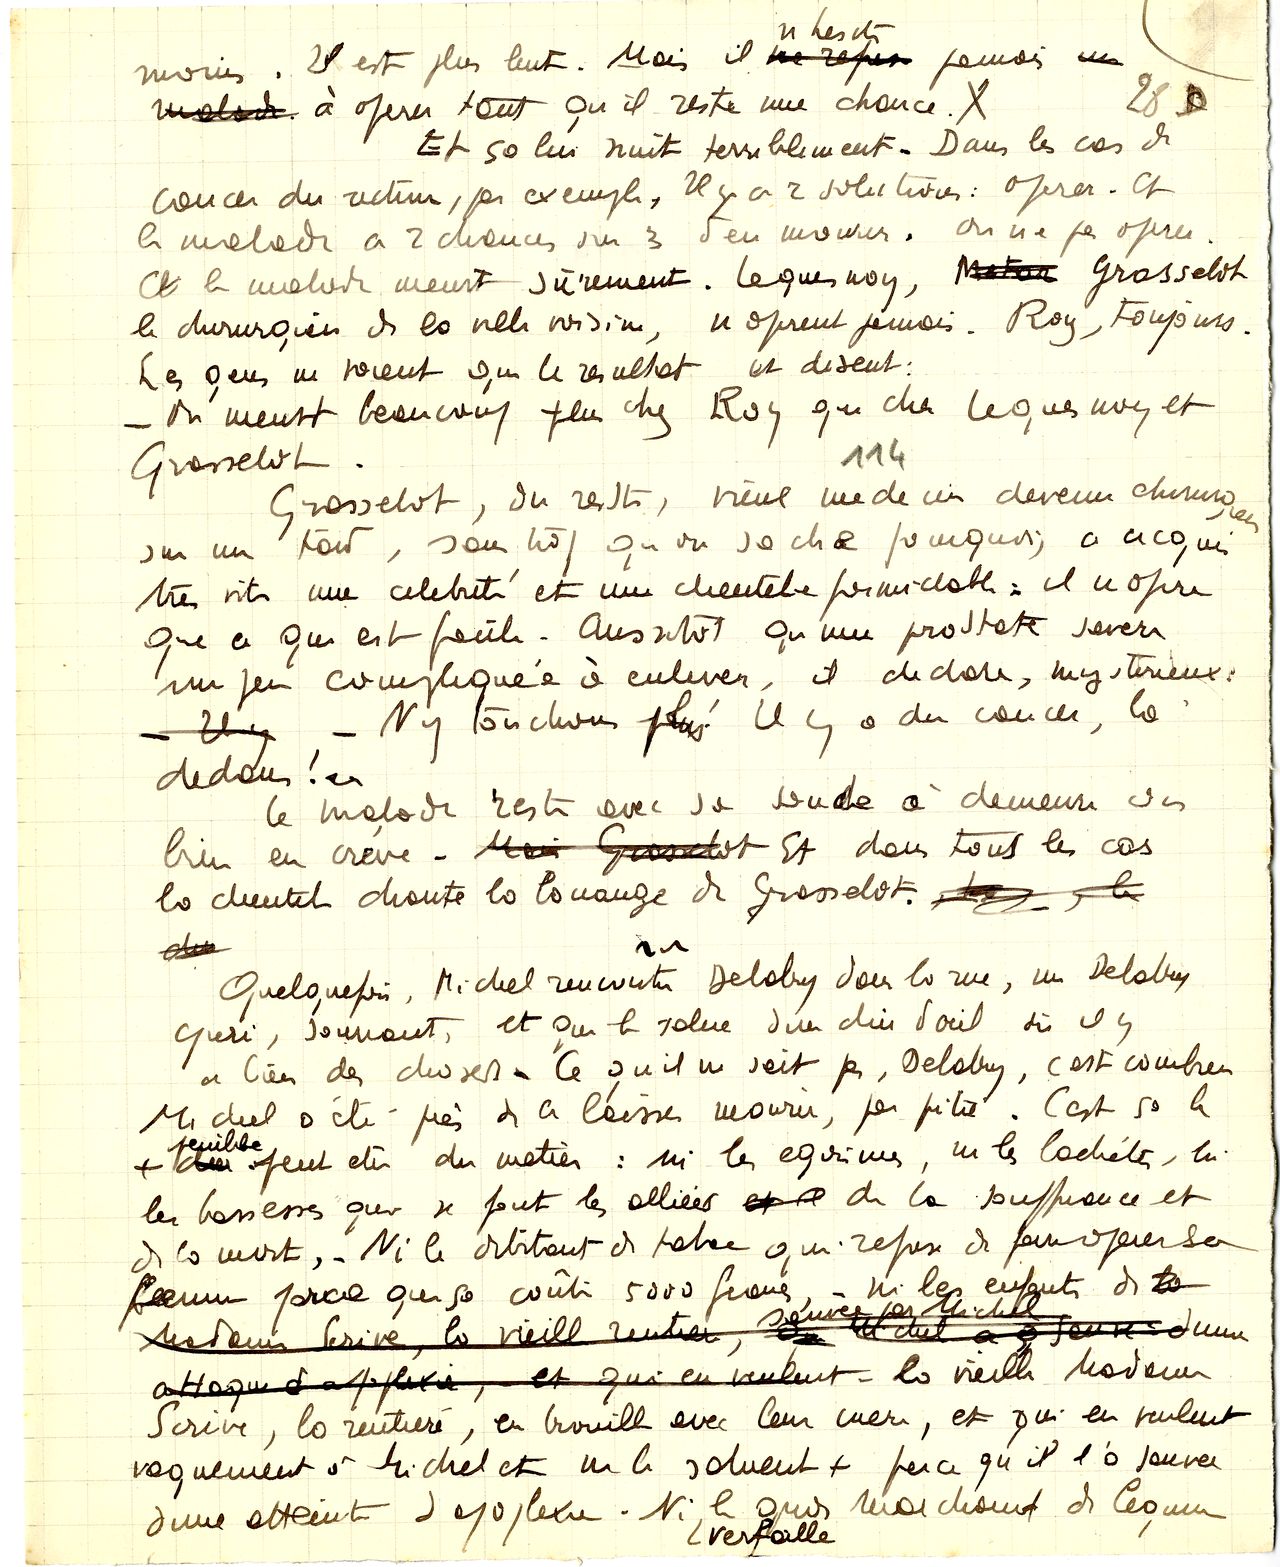 n'hesite
moins. Il est plus lent. Mais il ne refuse jamais un
malade à operer tant qu'il reste une chance. X 28
Et ça lui nuit terriblement. Dans les cas de
cancer du rectum, par exemple, Il y a 2 solutions : operer. Et
le malade a 2 chances sur 3 d'en mourir. Ou ne pas operer.
Et le malade meurt sûrement. Lequesnoy, Grosselot
le chirurgien de la ville voisine, n'operent jamais. Roy, toujours.
Les gens ne voient que le resultat et disent :
– On meurt beaucoup plus chez Roy que chez Lequesnoy et
Grosselot.
114
Grosselot, du reste, vieux medecin devenu chirurgien
sur un tard, sans trop qu'on sache pourquoi, a acquis
très vite une celebrité et une clientele formidable : il n'opere
que ce qui est facile. Aussitôt qu'une prostate s'avere
un peu compliquée à enlever, il declare, mysterieux :
– Il y – N'y touchons plus! Il y a du cancer, là
dedans!
Le malade reste avec sa sonde à demeure ou
bien en crève. Mais Grosselot Et dans tous les cas
la clientele chante la louange de Grosselot. le
Quelquefois, Michel rencontre un Delabry dans la rue, un Delabry
gueri, souriant, et qui le salue d'un clin d'œil où il y
a bien des choses. Ce qu'il ne sait pas, Delabry, c'est combien
Michel a été près de le laisser mourir, par pitié. C'est ça le
penible
+ dur peut etre du metier : ni les egoismes, ni les lachétés, ni
les bassesses que se font les alliées et de la souffrance et
de la mort, – Ni le debitant de tabac qui refuse de faire operer sa
femme parce que ça coûte 5000 francs, – ni les enfants de la
sauvée par Michel
Madame Scrive, la vieille rentiere, Michel a sauvé d'une
attaque d'apoplexie, – et qui en veulent – la vieille Madame
Scrive, la rentiere, en brouille avec leur mere, et qui en veulent
vaguement à Michel et ne le saluent + parce qu'il l'a sauvée
d'une atteinte d'apoplexie. Ni le gros marchand de legumes
Versalle